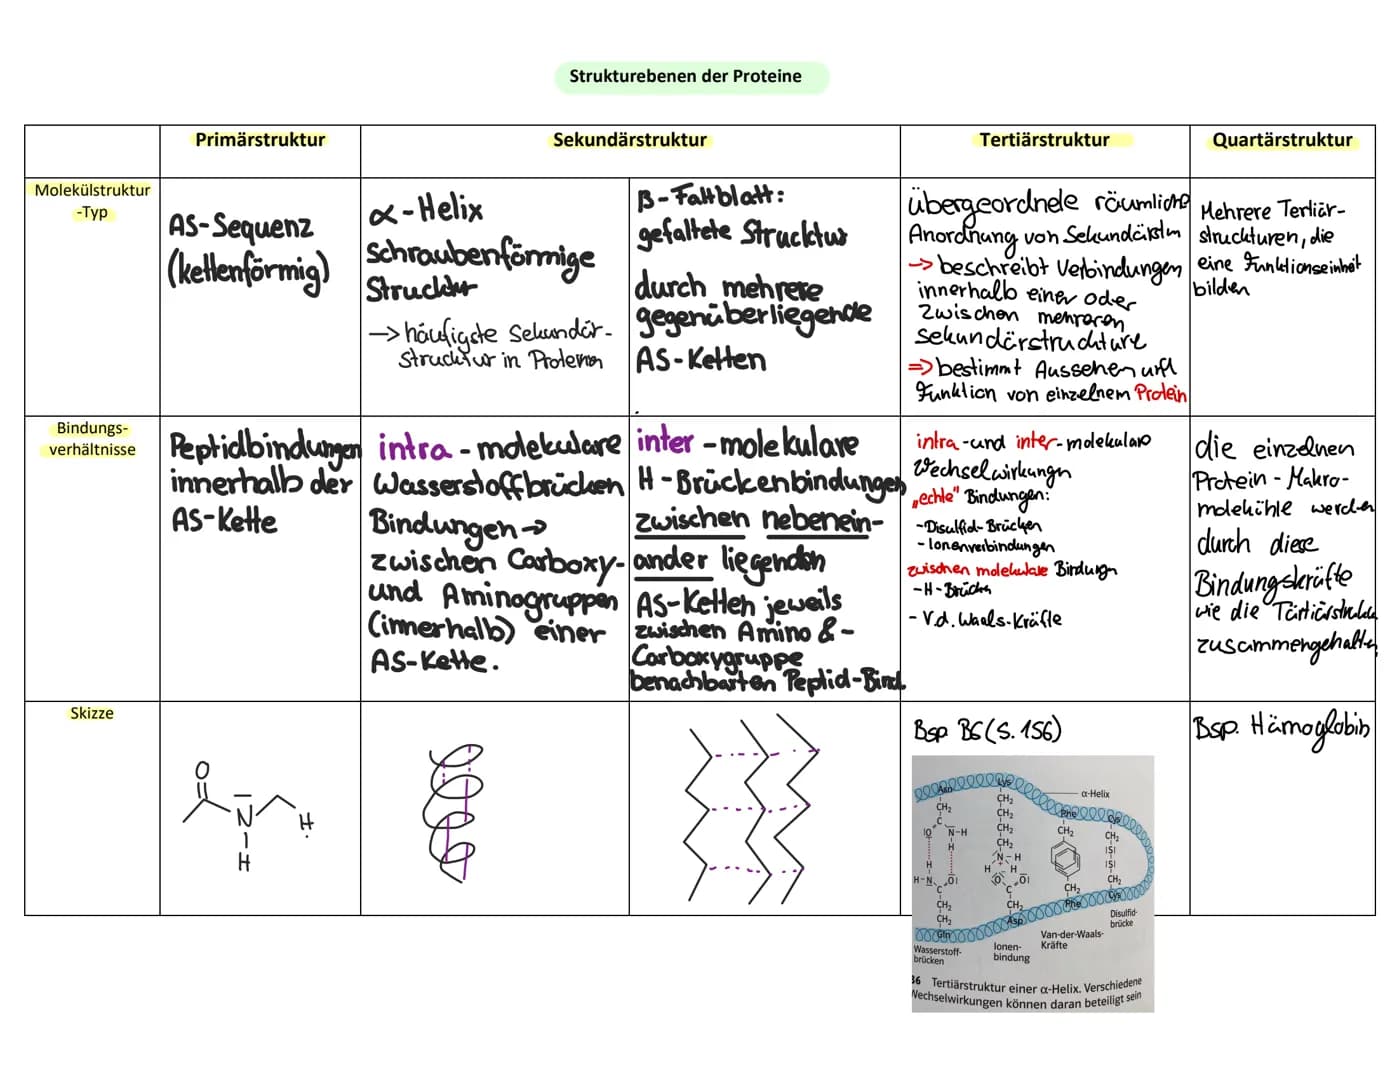 Strukturebenen der Proteine
Primärstruktur
Sekundärstruktur
Tertiärstruktur
Quartärstruktur
Molekülstruktur
-Typ
AS-Sequenz
(kettenförmig)
α-Helix
Schraubenförmige
Strucktur
→ häufigste Sekundär-
strucktur in Proteinen
β-Faltblatt:
gefaltete Strucktur
durch mehrere
gegenüberliegende
AS-Ketten
übergeordnete räumliche
Anordnung von Sekundärstrn
→ beschreibt Verbindungen
innerhalb einer oder
zwischen mehreren
sekundärstruckture
⇒ bestimmt Aussehen und
Funktion von einzelnem Protein
Mehrere Tertiär-
struckturen, die
eine Funktionseinheit
bilden
Bindungs-
verhältnisse
Peptidbindungen
innerhalb der
AS-Kette
intra-molekulare
Wasserstoffbrücken
Bindungen →
zwischen Carboxy-
und Aminogruppen
(innerhalb) einer
AS-Kette.
inter-molekulare
H-Brückenbindungen
zwischen nebenein-
ander liegenden
AS-Ketten jeweils
zwischen Amino &-
Carboxygruppe
benachbarten Peptid-Bind.
intra-und inter-molekulare
Wechselwirkungen
„echte" Bindungen:
-Disulfid-Brücken
-Ionenverbindungen
zwischen molekulare Bindungn
-H-Brücken
- V.d. Waals-Kräfte
die einzelnen
Protein-Makro-
moleküle werden
durch diese
Bindungskräfte
wie die Tärtiärstruktur
zusammengehalten
Skizze
O
N
H
H
Bsp B6 (S. 156)
Bsp. Hämoglobin
Asn
Lys
α-Helix
Phe
Cys
CH₂
CH₂
CH₂
CH₂
CH₂
CH₂
CH₂
C
IO
N-H
H
N-H
H
H
ISI
ISI
H
H-N
OI
C
O
OI
C
CH₂
CH₂
CH₂
CH₂
CH₂
Gln
Asp
Phe
Cys
Wasserstoff-
brücken
Ionen-
bindung
Van-der-Waals-
Kräfte
Disulfid-
brücke
B6 Tertiärstruktur einer α-Helix. Verschiedene
Wechselwirkungen können daran beteiligt sein